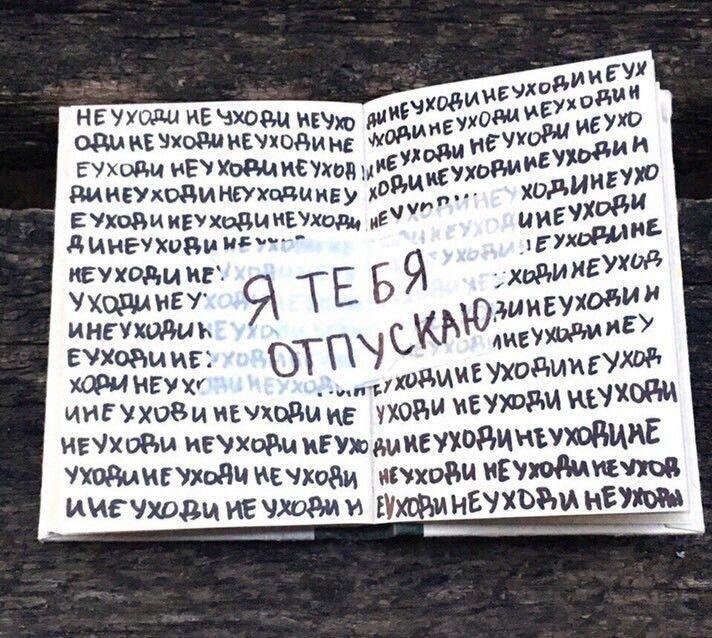 НЕ УХОДИ НЕ УХОДИ НЕУХО
ОДИ НЕ УХОДИ НЕУХОДИ НЕ
ЕУХОДИ НЕУХОДИ НЕУХОД
ДИНЕУХОДИ НЕУХОДИ НЕУ
ЕУХОДИ НЕУХОДИ НЕ УХОДИ
ДИНЕУХОДИ НЕ УХО
НЕУХОДИ НЕ
УХОДИ НЕУХОД
ИНЕУХОДИ НЕУХО
ЕУХОДИ НЕ УХОД
ХОДИ НЕУХОДИ НЕУХОД
ИНЕ УХОДИ НЕУХОДИ НЕ
НЕУХОДИ НЕУХОДИ НЕУХО
УХОДИ НЕ УХОДИ НЕ УХОДИ
И НЕ УХОДИ НЕ УХОДИ Н
Я ТЕБЯ
ОТПУСКАЮ
ДИ НЕУХОДИ НЕУХОДИ НЕУХ
УХОДИ НЕ УХОДИ НЕУХОДИ Н
НЕУХОДИ НЕУХОДИ НЕУХО
ХОДИ НЕУХОДИ НЕУХОДИ Н
НЕУХОДИ НЕУХОДИ НЕУХО
ДИ НЕУХОДИ НЕУХОДИ
УХОДИ НЕУХОДИ НЕ
ХОДИ НЕУХОД
ДИНЕУХОДИ Н
ИНЕУХОДИ НЕУ
ЕУХОДИ НЕ УХОДИ НЕ УХОД
УХОДИ НЕ УХОДИ НЕУХОДИ
ДИ НЕ УХОДИ НЕУХОДИ НЕ
НЕУХОДИ НЕ УХОДИ НЕУХОД
ЕУХОДИ НЕУХОДИ НЕУХОДИ